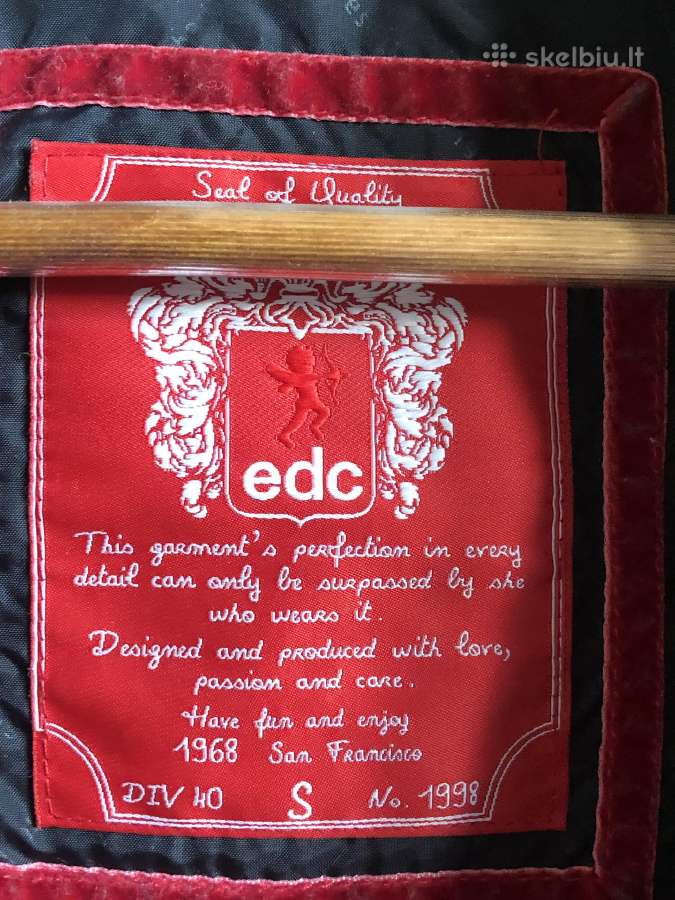 skelbiu.lt
Seal of Quality
edc
This garment's perfection in every
detail can only be surpassed by she
who wears it.
Designed and produced with love,
passion and care.
Have fun and enjoy
1968 San Francisco
DIV 40 S No. 1998